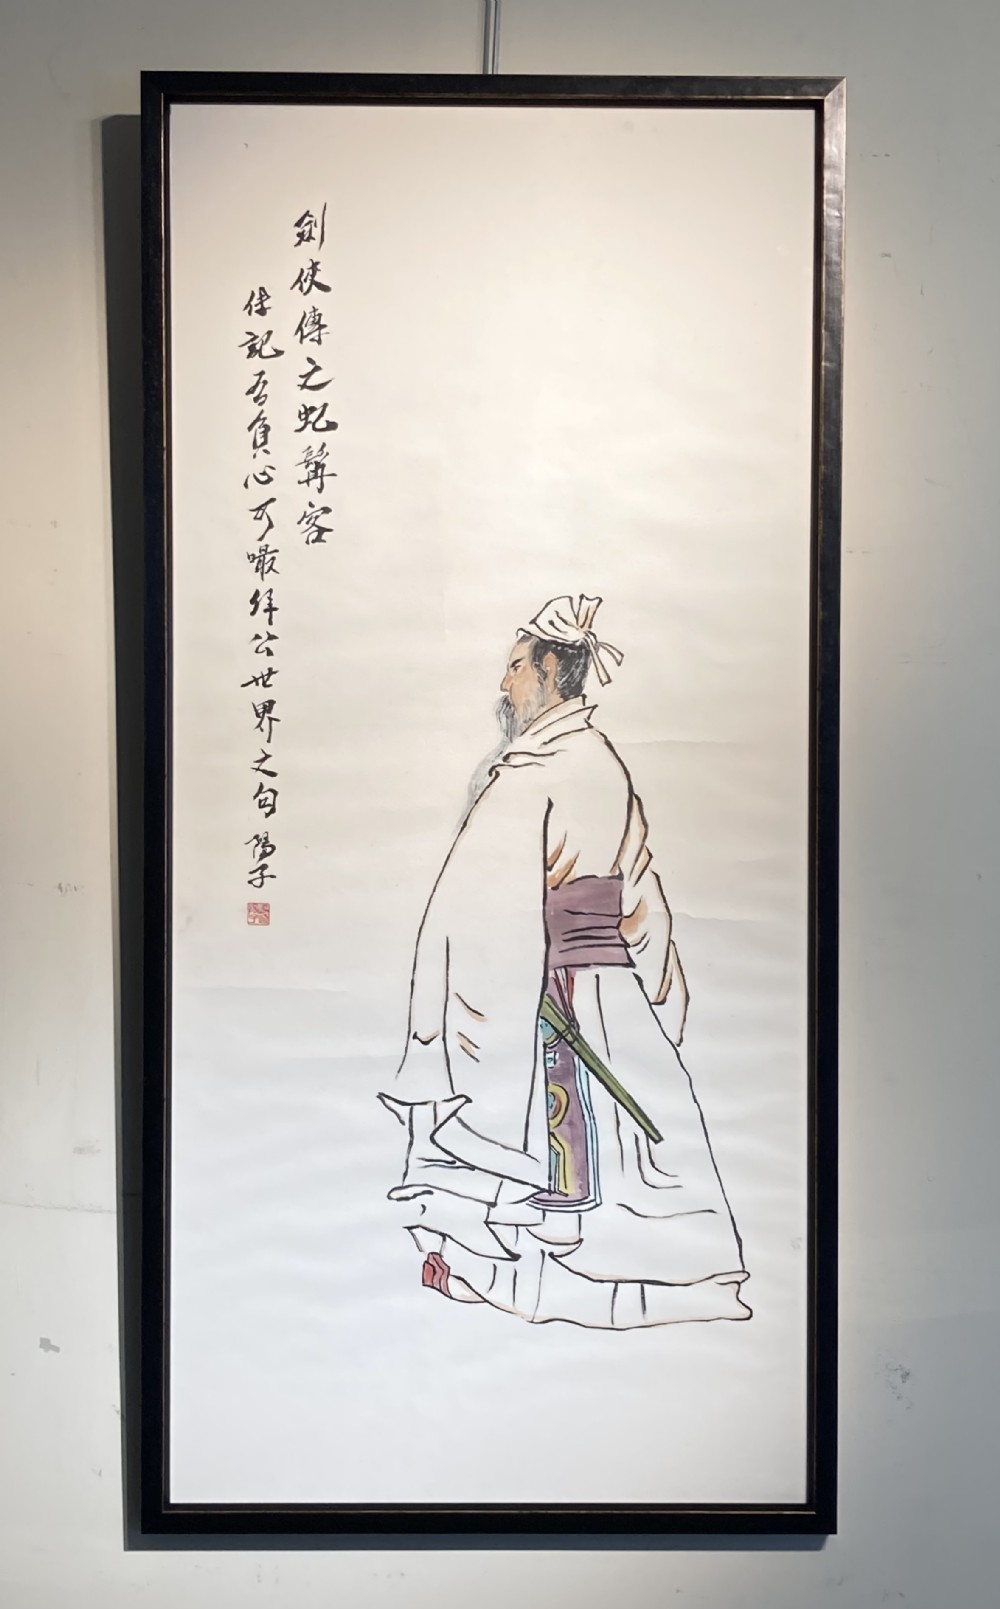 劍俠傳之虬髯客
佳記吾負心可嘬拜公世界之句 陽子